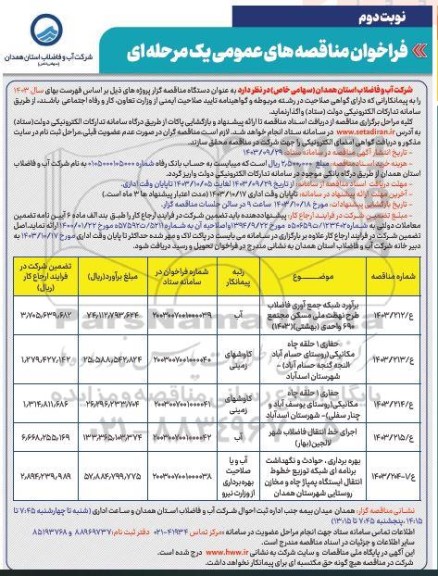 نوبت دوم
فراخوان مناقصه های عمومی یک مرحله ای
شرکت آب و فاضلاب استان همدان
شرکت آب و فاضلاب استان همدان (سهامی خاص) در نظر دارد به عنوان دستگاه مناقصه گزار پروژه های ذیل بر اساس فهرست بهای سال ۱۴۰۳
را به پیمانکارانی که دارای گواهی صلاحیت در رشته مربوطه و گواهینامه تایید صلاحیت ایمنی از وزارت تعاون، کار و رفاه اجتماعی باشند، از طریق
سامانه تدارکات الکترونیکی دولت (ستاد) واگذار نماید.
کلیه مراحل برگزاری مناقصه از دریافت اسناد مناقصه تا ارائه پیشنهاد و بازگشایی پاکات از طریق سامانه تدارکات الکترونیکی دولت (ستاد)
به آدرس www.setadiran.ir در سامانه ستاد انجام خواهد شد. لازم است مناقصه گران در صورت عدم عضویت قبلی، مراحل ثبت نام در سایت
مذکور و دریافت گواهی امضای الکترونیکی را جهت شرکت در مناقصه محقق سازند.
- تاریخ انتشار آگهی مناقصه در سامانه: ۱۴۰۳/۰۹/۲۹
- هزینه خرید اسناد مناقصه: مبلغ ۲,۵۰۰,۰۰۰ ریال است که میبایست به حساب بانک رفاه شماره ۰۱۰۵۰۰۰۱۰۵۰۰۰ به نام شرکت آب و فاضلاب
استان همدان از طریق درگاه بانکی موجود در سامانه تدارکات الکترونیکی دولت واریز گردد.
- مهلت دریافت اسناد مناقصه از سامانه: از تاریخ ۱۴۰۳/۰۹/۲۹ لغایت ۱۴۰۳/۱۰/۰۵ تا پایان وقت اداری.
- آخرین مهلت ارائه پیشنهاد در سامانه: تا پایان وقت اداری ۱۴۰۳/۱۰/۱۷ (مدت اعتبار پیشنهاد ها ۳ ماه است.)
- تاریخ بازگشایی پیشنهادات: مورخ ۱۴۰۳/۱۰/۱۸ ساعت ۹ در سالن جلسات مناقصه گزار.
- مبلغ تضمین شرکت در فرایند ارجاع کار: پیشنهاددهنده باید تضمین شرکت در فرایند ارجاع کار را طبق بند الف ماده ۶ آیین نامه تضمین
معاملات دولتی به شماره ۱۲۳۴۰۲/ت۵۰۶۵۹ه مورخ ۱۳۹۴/۹/۲۲ و اصلاحیه آن به شماره ۵۲۱۱/ت۵۷۵۹۲ه مورخ ۱۴۰۰/۰۱/۲۲ ارائه نماید. اصل
تضمین شرکت در فرایند ارجاع کار علاوه بر بارگذاری در سامانه می بایست در پاکت لاک و مهر شده حداکثر تا پایان وقت اداری مورخ ۱۴۰۳/۱۰/۱۷ به
دبیر خانه شرکت آب و فاضلاب استان همدان به نشانی مندرج در فراخوان تحویل و رسید دریافت شود.
شماره مناقصه | موضـــــوع | رتبه پیمانکار | شماره فراخوان در سامانه ستاد | مبلغ برآورد(ریال) | تضمین شرکت در فرایند ارجاع کار (ریال)
۱۴۰۳/۲۱۲/ع | برآورد شبکه جمع آوری فاضلاب طرح نهضت ملی مسکن مجتمع ۶۹۰ واحدی (بهشتی) (۱۴۰۳) | آب | ۲۰۰۳۰۰۷۰۰۱۰۰۰۰۳۹ | ۷۴,۱۱۲,۷۹۳,۶۲۴ | ۳,۷۰۵,۶۳۹,۶۸۲
۱۴۰۳/۲۱۳/ع | حفاری ۱ حلقه چاه مکانیکی (روستای حسام آباد (لنجه کنجه حسام آباد) - شهرستان اسدآباد | کاوشهای زمینی | ۲۰۰۳۰۰۷۰۰۱۰۰۰۰۴۰ | ۲۵,۵۸۸,۵۴۲,۸۲۴ | ۱,۲۷۹,۴۲۷,۱۴۲
۱۴۰۳/۲۱۴/ع | حفاری ۱ حلقه چاه مکانیکی (روستای یوسف آباد و چنار سفلی) - شهرستان اسدآباد | کاوشهای زمینی | ۲۰۰۳۰۰۷۰۰۱۰۰۰۰۴۱ | ۲۶,۲۹۶,۲۳۳,۷۰۴ | ۱,۳۱۴,۸۱۱,۶۸۶
۱۴۰۳/۲۱۵/ع | اجرای خط انتقال فاضلاب شهر لالجین (بهار) | آب | ۲۰۰۳۰۰۷۰۰۱۰۰۰۰۴۲ | ۱۳۳,۳۶۵,۱۰۳,۳۷۴ | ۶,۶۶۸,۲۵۵,۱۶۹
۱۴۰۳/۲۰۴-۷/ع | بهره برداری ، حوادث و نگهداشت برنامه ای شبکه توزیع خطوط انتقال ایستگاه پمپاژ چاه و مخازن روستایی شهرستان همدان | آب و یا صلاحیت بهره برداری از وزارت نیرو | ۲۰۰۳۰۰۷۰۰۱۰۰۰۰۳۸ | ۵۷,۸۸۴,۷۹۹,۷۷۵ | ۲,۸۹۴,۲۳۹,۹۸۹
نشانی مناقصه گزار: همدان میدان بیمه جنب اداره ثبت احوال شرکت آب و فاضلاب استان همدان و ساعت اداری (شنبه تا چهارشنبه ۷:۴۵ تا
۱۴:۱۵ -پنجشنبه ۷:۴۵ تا ۱۳:۱۵)
اطلاعات تماس سامانه ستاد جهت انجام مراحل عضویت در سامانه - مرکز تماس ۴۱۹۳۴-۰۲۱ دفتر ثبت نام: ۸۸۹۶۹۷۳۷ و ۸۵۱۹۳۷۶۸
سایر اطلاعات و جزئیات در اسناد مناقصه مندرج است.
این آگهی در پایگاه ملی مناقصات و سایت شرکت به نشانی www.hww.ir درج شده است.
شرکت در مناقصه هیچ گونه حق مکتسبه ای برای پیمانکار نخواهد داشت.